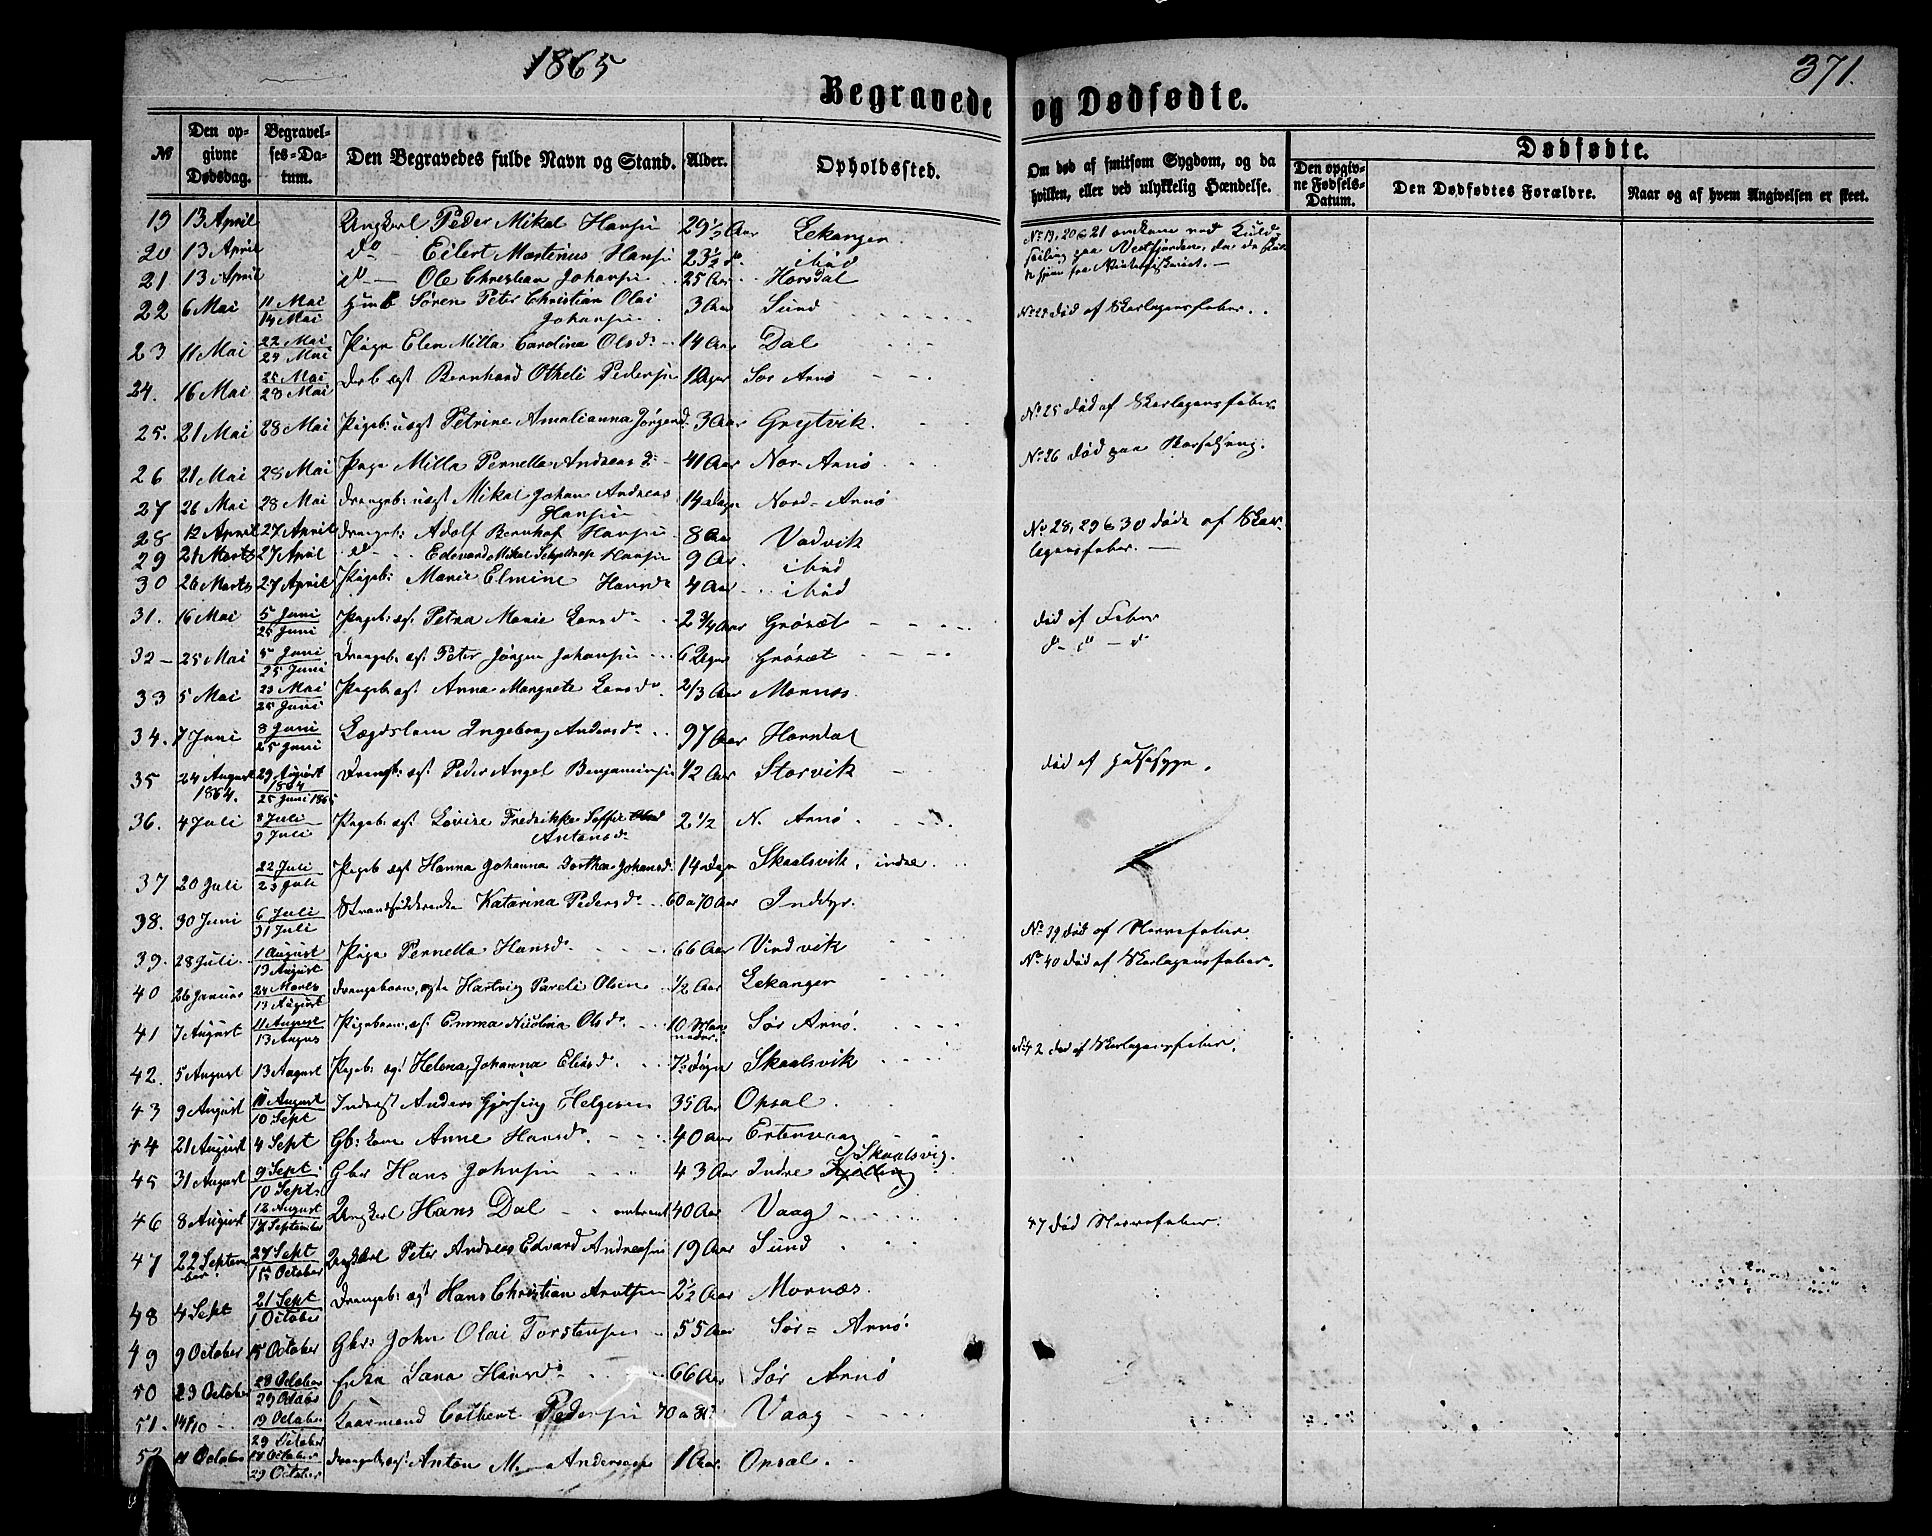 1865
371.
Begravede og Dødfødte.
№ Den opgivne Dødsdag. Begravelses-Datum. Den Begravedes fulde Navn og Stand. Alder. Opholdssted. Om død af smitsom Sygdom, og da hvilken, eller ved ulykkelig Hændelse. Dødfødte.
Den opgivne Fødsels-Datum. Den Dødfødtes Forældre. Naar og af hvem Angivelsen er skeet.
19 13 April Ungkarl Peder Mikal Hansen 29 1/2 Aar Lekanger. No 19, 20 & 21 omkom ved Kuld-
20 13 April do Eilert Martinus Hansen 23 1/2 do ibid seiling paa Vestfjorden, da de
21 13 April do Ole Christian Johansen 25 Aar Horsdal hjem fra Vinterfiskeriet.
22 6 Mai 11 Mai 14 Mai Søren Peter Christian Olai Johansen 3 Aar Sund No 22 død af Skarlagensfeber.
23 11 Mai 22 Mai 24 Mai Pige Elen Milla Carolina Olsdr 14 Aar Dal
24. 16 Mai 25 Mai 28 Mai Bernhard Otheli Pedersen Sør Arnø
25. 21 Mai 28 Mai Pigeb: uægt Petrine Amalianna Jørgensd. 3 Aar Grejtvik. No 25 død af Skarlagensfeber
26 21 Mai 28 Mai Pige Milla Pernella Andreas d. 41 Aar Nor Arnø No 26 død paa Barselseng.
27 26 Mai 28 Mai Drengeb: uægt Mikal Johan Andreas Hansen 14 Dage Nord-Arnø
28 12 April 27 April Drengeb: Adolf Bernhof Hansen 8 Aar Vadvik No 28, 29 & 30 døde af Skar-
29 24 Marts 27 April do Edevard Mikal Hansen 9 Aar. ibid lagensfeber.
30 26 Marts 27 April Pigeb: Marie Elmine Hansdr 4 Aar ibid
31. 16 Mai 5 Juni 25 Juni Pigeb: æg: Petra Marie Larsdr 2 3/4 Aar Grøsæt død af Feber
32 25 Mai 5 Juni 25 Juni Drengeb: æg: Peter Jørgen Johansen 6 Dage Grøsæt do - do
33 5 Mai 23 Mai 25 Juni Pigeb: æg: Anna Margrete Larsdr 2/3 Aar Mornæs.
34. 7 Juni 8 Juni 25 Juni Lægdslem Ingeborg Andersdr 97 Aar Horndal
35 24 August 1864. 29 August 1864 25 Juni 1865 Drengb: æg: Peder Angel Benjaminsen 1/2 Aar Storvik død af Halssyge.
36. 4 Juli 8 Juli 9 Juli Pigeb: ægt Lovise Fredrikke Soffie Antonsdr 2 1/2 N. Arnø.
37 20 Juli 22 Juli 23 Juli Pigeb ægt Hanna Johanna Dorthea Johansd. 14 Dage Skaalsvik, indre.
38. 30 Juni 6 Juli 31 Juli Strandsidderenke Katarina Pedersdr 60 a 70 Aar Inddyr.
39. 28 Juli. 1 August 13 August Pige Pernella Hansdr. 66 Aar Vindvik No 39 død af Nervefeber.
40 26 Januar 24 Marts 13 August Drengebarn, ægte Hartvig Pareli Olsen 1/2 Aar Lekanger No 40 død af Skarlagensfeber.
41 7 August 11 August 13 Augus Pigebarn, æg: Emma Nicolina Olsdr. 10 Maaneder. Sør Arnø.
42. 5 August 13 August Pigeb: ægt Helena Johanna Eliasd. Skaalsvik No 42 død af Skarlagensfeber.
43 9 August August 10 Sept Inderst Anders Gjersing Helgesen 35 Aar Opsal.
44 21 August 4 Sept Gb: kone Anne Hansdr. 40 Aar Estenvaag
45 31 August 9 Sept 10 Sept: Gbr Hans Johnsen 43 Aar Indre Kjelling Skaalsvig.
46 8 August 12 August 17 September Ungkarl Hans Dal omtrent 40 Aar Vaag
47 22 September 27 Sept 15 October Ungkarl Peter Andreas Edvard Andreasen 19 Aar Sund 47 død Nervefeber.
48 4 Sept 21 Sept 1 October Drengeb: ægt Hans Christian Arntsen 2 1/2 Aar Mornæs.
49 9 October 15 October Gbr: John Olai Torstensen 55 Aar Sør=Arnø.
50 23 October 28 October 29 Octobr Enke Lana Hansdr 66 Aar Sør Arnø
51. 14/10 19 October 29 October Kaarmand Colbent Pedersen Vaag
52 11 October 17 October 29 October Drengeb: æg: Anton M. Andersen 1 Aar. Opsal.